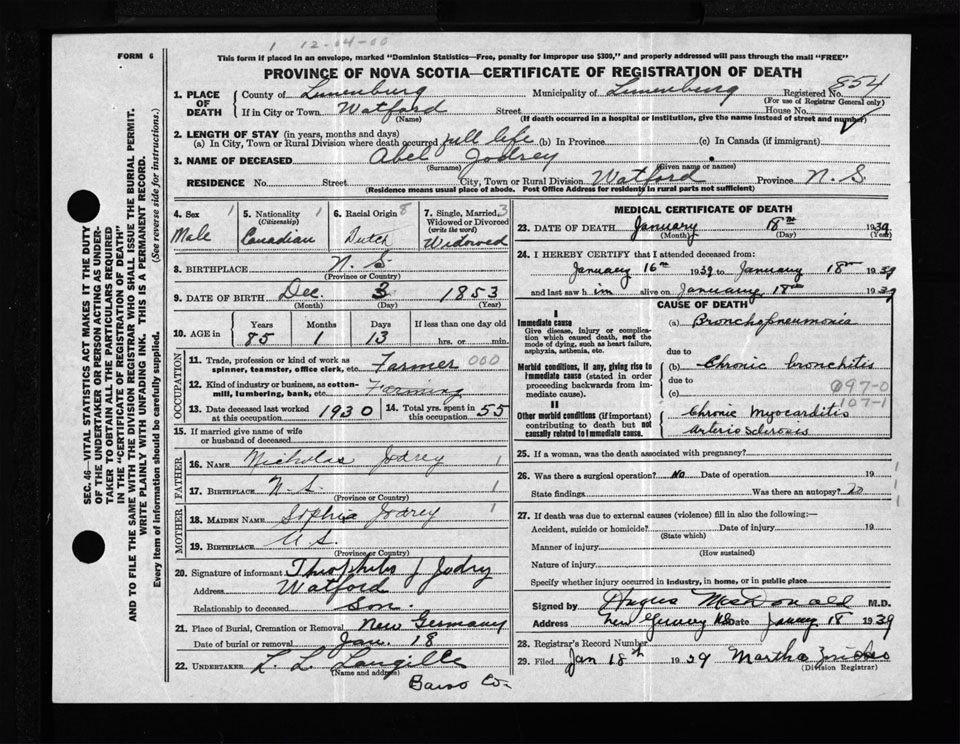 1 12-04-00
FORM 6
This form if placed in an envelope, marked "Dominion Statistics—Free, penalty for improper use $300," and properly addressed will pass through the mail "FREE"
PROVINCE OF NOVA SCOTIA—CERTIFICATE OF REGISTRATION OF DEATH
SEC. 46—VITAL STATISTICS ACT MAKES IT THE DUTY
OF THE UNDERTAKER OR PERSON ACTING AS UNDER-
TAKER TO OBTAIN ALL THE PARTICULARS REQUIRED
IN THE "CERTIFICATE OF REGISTRATION OF DEATH"
AND TO FILE THE SAME WITH THE DIVISION REGISTRAR WHO SHALL ISSUE THE BURIAL PERMIT.
WRITE PLAINLY WITH UNFADING INK. THIS IS A PERMANENT RECORD.
Every item of information should be carefully supplied. (See reverse side for instructions.)
1. PLACE OF DEATH County of Lunenburg Municipality of Lunenburg Registered No. 854
(For use of Registrar General only)
If in City or Town Watford Street House No.
(Name) (If death occurred in a hospital or institution, give the name instead of street and number)
2. LENGTH OF STAY (in years, months and days)
(a) In City, Town or Rural Division where death occurred full life (b) In Province (c) In Canada (if immigrant)
3. NAME OF DECEASED Abel Jodrey
(Surname) (Given name or names)
RESIDENCE No. Street City, Town or Rural Division Watford Province N. S
(Residence means usual place of abode. Post Office Address for residents in rural parts not sufficient)
4. Sex 1 Male
5. Nationality 1 (Citizenship) Canadian
6. Racial Origin 8 Dutch
7. Single, Married, 3 Widowed or Divorced (write the word) Widowed
8. BIRTHPLACE N. S
(Province or Country)
9. DATE OF BIRTH Dec. 3 1853
(Month) (Day) (Year)
10. AGE in Years Months Days If less than one day old
85 1 13 hrs. or min.
OCCUPATION
11. Trade, profession or kind of work as spinner, teamster, office clerk, etc. Farmer 000
12. Kind of industry or business, as cotton-mill, lumbering, bank, etc. Farming
13. Date deceased last worked at this occupation 1930 14. Total yrs. spent in this occupation 55
15. If married give name of wife or husband of deceased
FATHER
16. NAME Nicholas Jodrey 1
17. BIRTHPLACE N. S. 1
(Province or Country)
MOTHER
18. MAIDEN NAME Sophia Jodrey 1
19. BIRTHPLACE N. S.
(Province or Country)
20. Signature of informant J Jodry
Address Watford
Relationship to deceased Son.
21. Place of Burial, Cremation or Removal New Germany
Date of burial or removal Jan. 18
22. UNDERTAKER L. L. Langille
(Name and address)
Co.
MEDICAL CERTIFICATE OF DEATH
23. DATE OF DEATH January 18th 1939
(Month) (Day) (Year)
24. I HEREBY CERTIFY that I attended deceased from:
January 16th 1939 to January 18th 1939
and last saw him alive on January 18th 1939
CAUSE OF DEATH
I
Immediate cause
Give disease, injury or complication which caused death, not the mode of dying, such as heart failure, asphyxia, asthenia, etc.
(a) Bronchopneumonia
due to
Morbid conditions, if any, giving rise to immediate cause (stated in order proceeding backwards from immediate cause).
(b) Chronic bronchitis
due to
(c) 097-0
107-1
II
Other morbid conditions (if important) contributing to death but not causally related to immediate cause.
Chronic Myocarditis
Arterio Sclerosis
25. If a woman, was the death associated with pregnancy?
26. Was there a surgical operation? No Date of operation 19
State findings Was there an autopsy? No
27. If death was due to external causes (violence) fill in also the following:—
Accident, suicide or homicide? Date of injury 19
(State which)
Manner of injury
(How sustained)
Nature of injury
Specify whether injury occurred in industry, in home, or in public place
Signed by Angus McDonald M.D.
Address New Germany NS Date January 18 1939
28. Registrar's Record Number
29. Filed Jan 18th 1939 Martha
(Division Registrar)